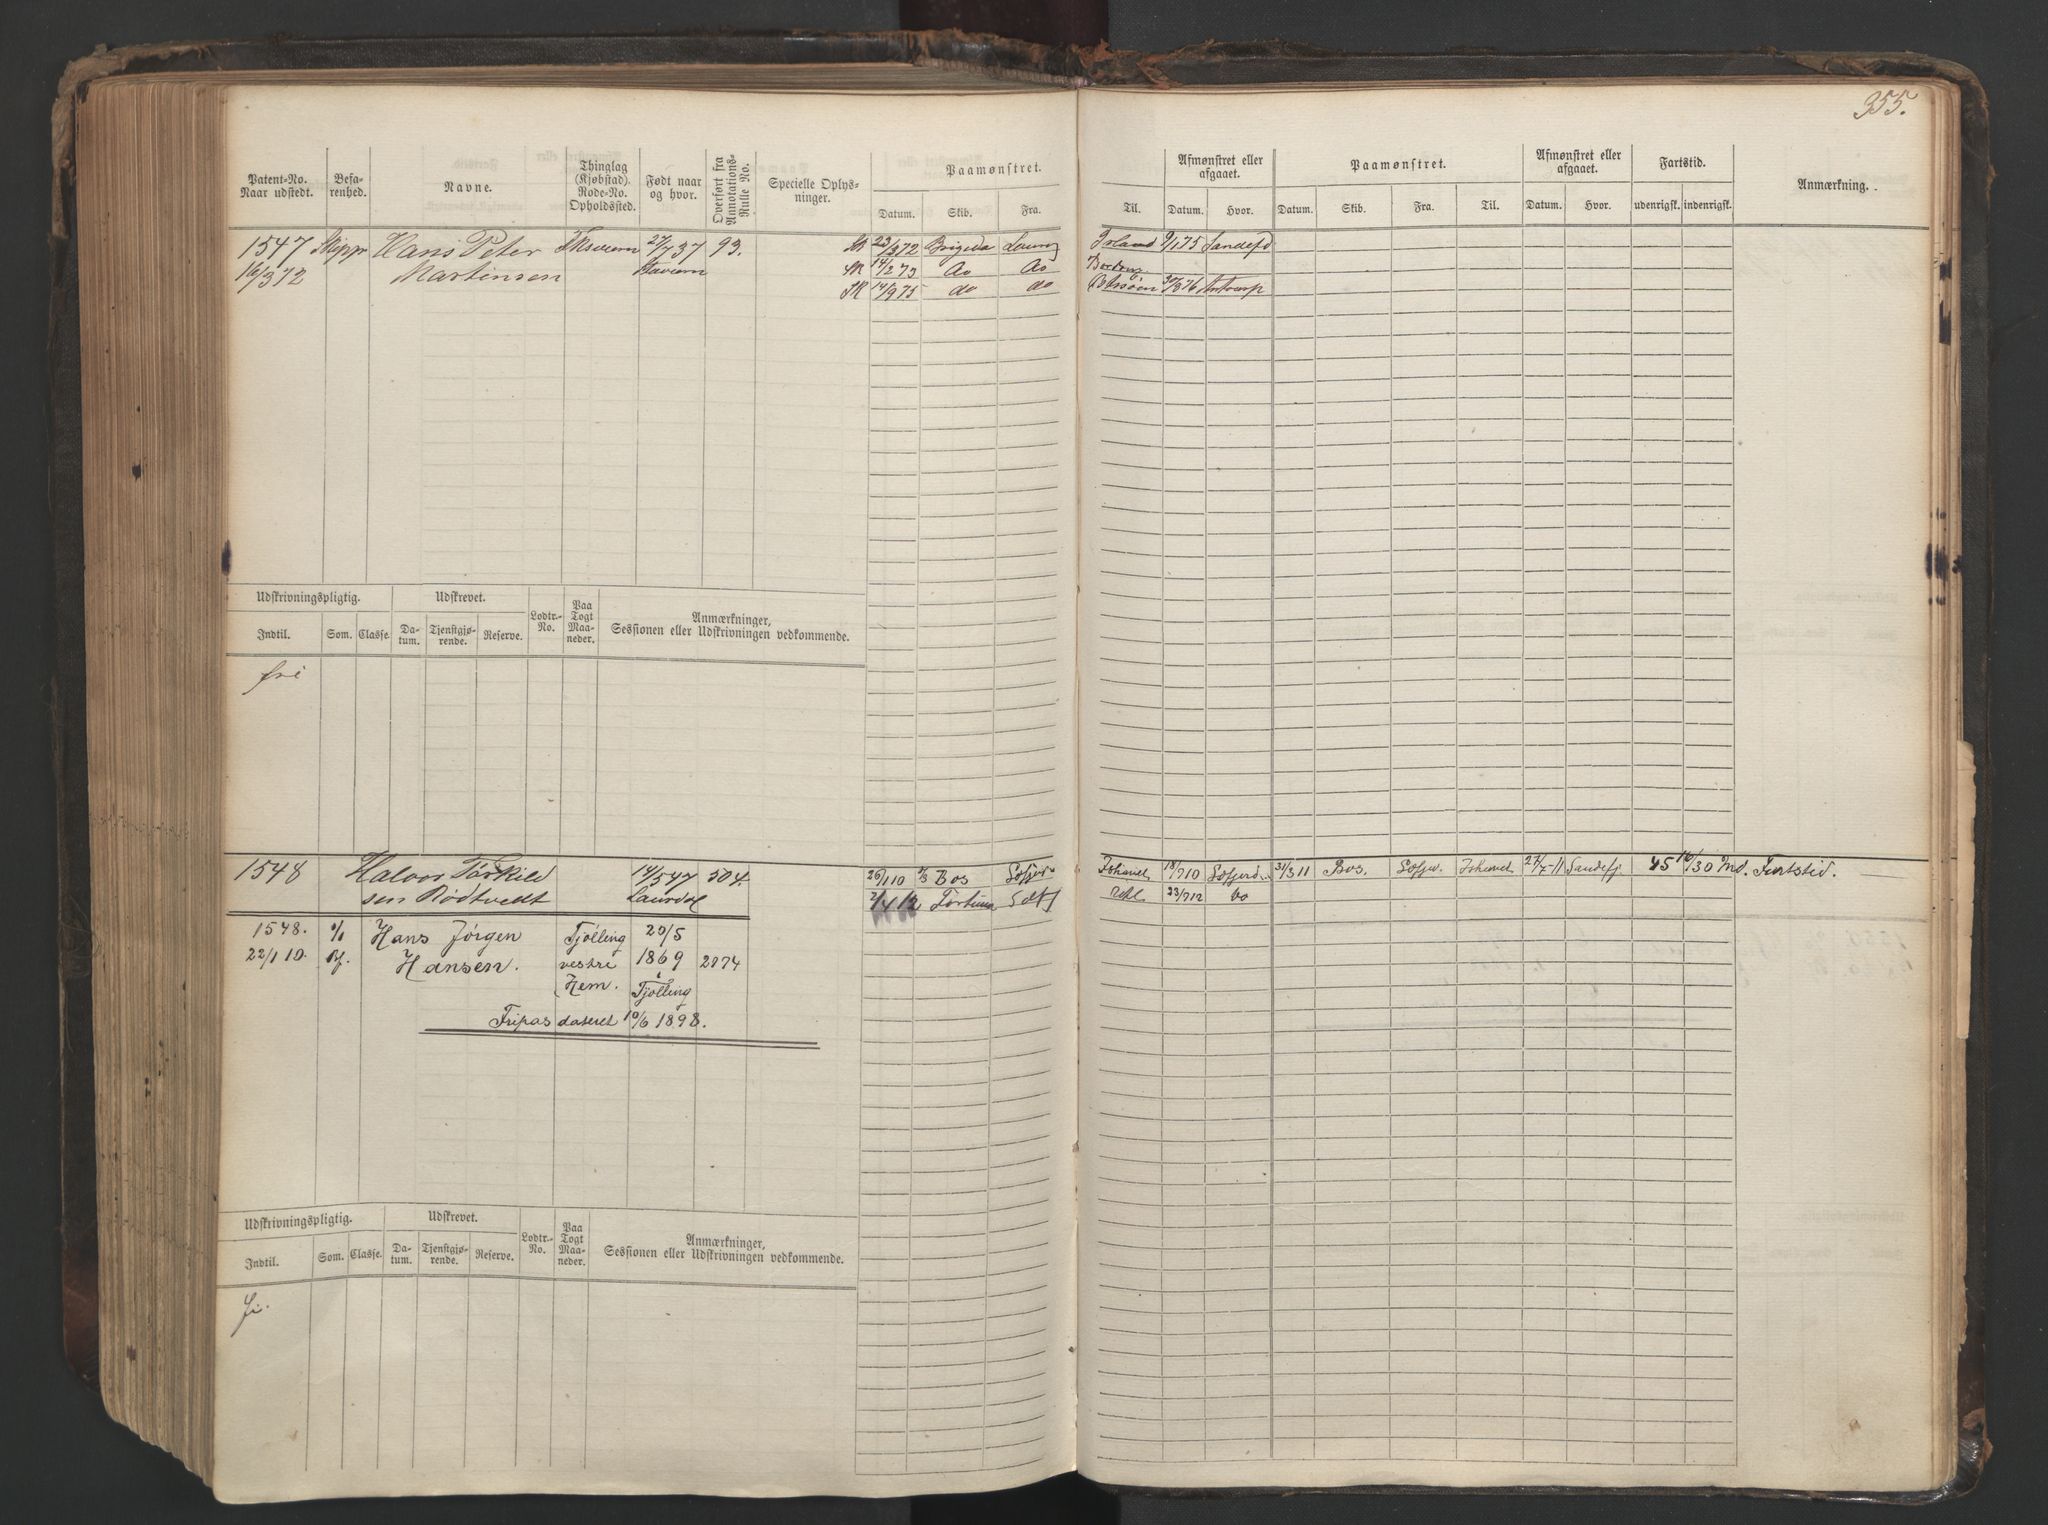 355.
Patent-No. Naar udstedt. Befarenhed. Navne. Thinglag (Kjøbstad). Rode-No. Opholdssted. Født naar og hvor. Overført fra Annotations-Rulle No. Specielle Oplysninger. Paamønstret. Afmønstret eller afgaaet. Paamønstret. Afmønstret eller afgaaet. Fartstid. Anmærkning.
Datum. Skib. Fra. Til. Datum. Hvor. Datum. Skib. Fra. Til. Datum. Hvor. udenrigsk. indenrigsk.
1547 Skippr Hans Peter 27/7 37 93. 23/3 72 Brigeda Island 9/1 75 Sandefd
16/3 72 Martinsen Stavern 14/2 73 do do
14/9 75 do do 30/3 76
Udskrivningspligtig. Udskrevet. Lodtr.-No. Paa Togt Maaneder. Anmærkninger, Sessionen eller Udskrivningen vedkommende.
Indtil. Som. Classe. Datum. Tjenstgjørende. Reserve.
fri
1548 Halvor Torkild 14/5 47 504. 26/1 10 Bos Johanes 18/7 10 31/3 11 Bos. Johanes 27/7-11 Sandefj 45 16/30 Md. Fartstid.
sen Rödtvedt Laurdal 2/4 12 Fortuna 23/7 12 do
1548. Hans Jörgen Tjölling 20/5
22/1 10. Hansen. vestre 1869 2074
Hem. i Tjölling
Fripas dateret 10/6 1898.
Udskrivningspligtig. Udskrevet. Lodtr.-No. Paa Togt Maaneder. Anmærkninger, Sessionen eller Udskrivningen vedkommende.
Indtil. Som. Classe. Datum. Tjenstgjørende. Reserve.